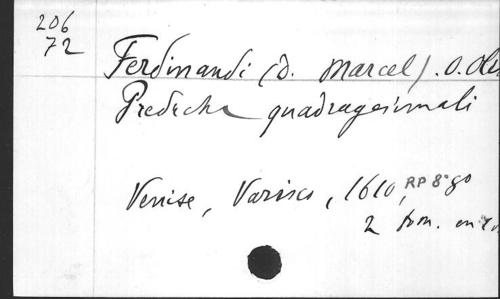 206
72
Ferdinandi (D. Marcel). O. Oli
Prediche quadragesimali
Venise, Varisco, 1610, RP 8° 90
2 tom. en 1 v.